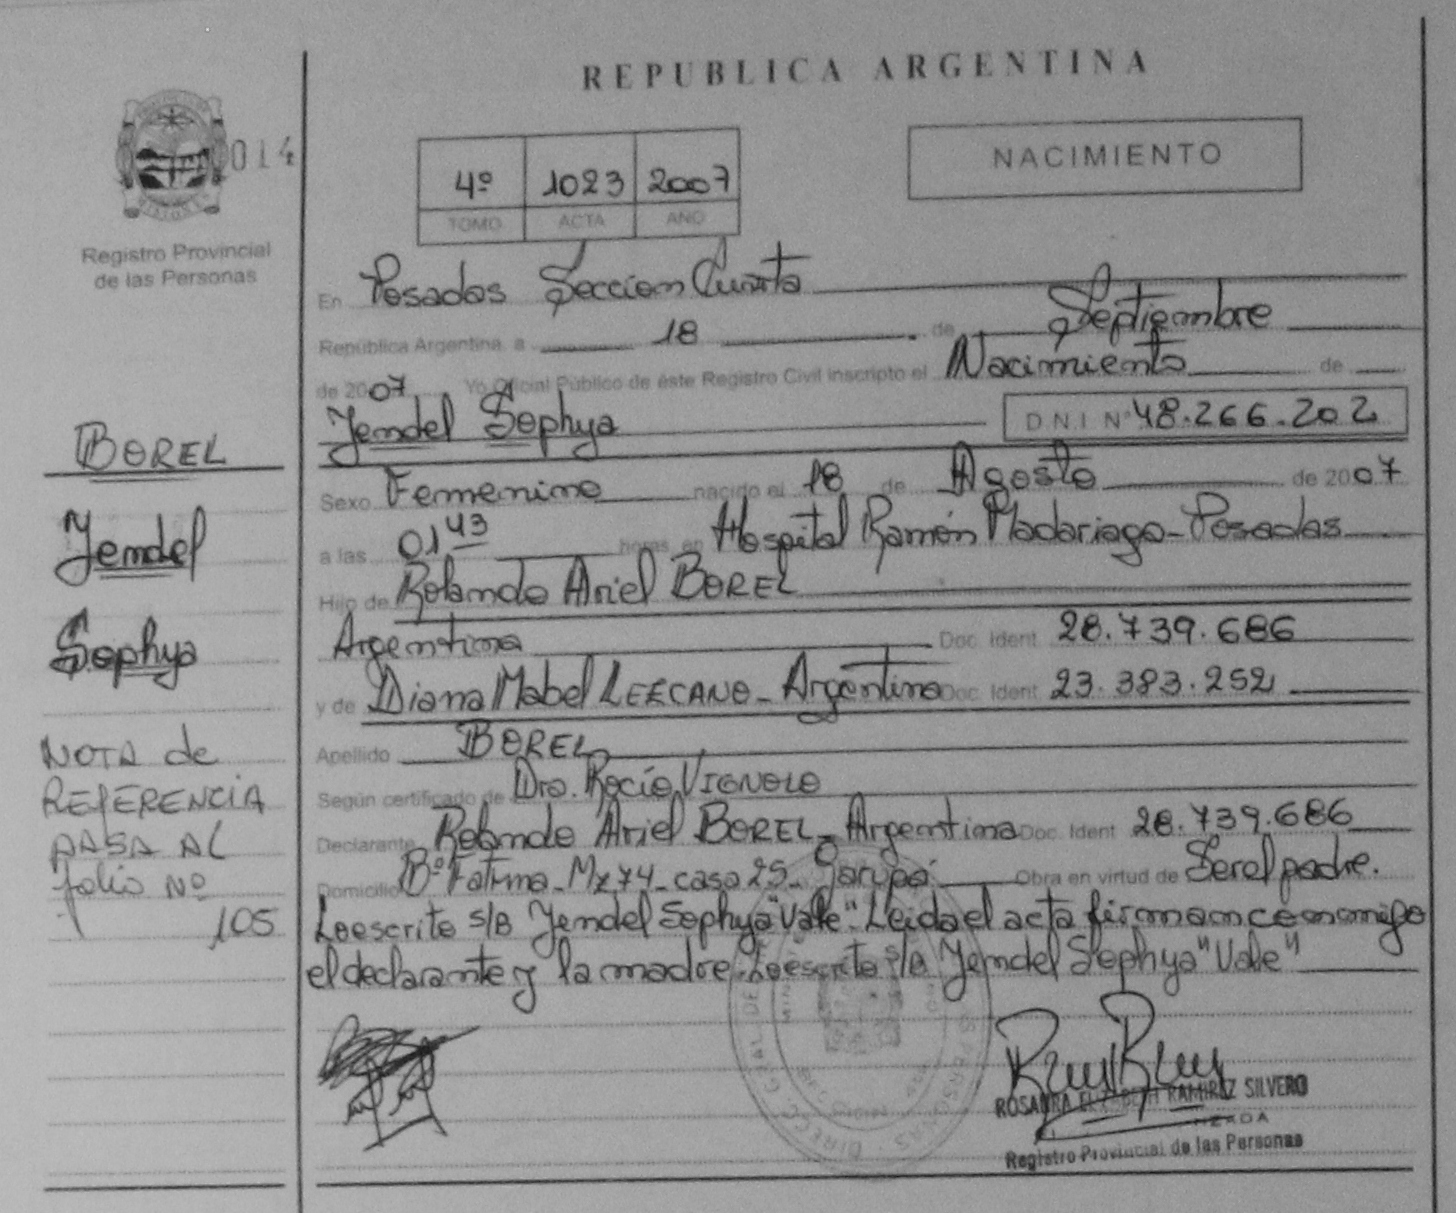 REPUBLICA ARGENTINA
014
4º 1023 2007
TOMO ACTA AÑO
NACIMIENTO
Registro Provincial
de las Personas
En Posadas Seccion Cuarta
República Argentina a 18 de Septiembre
de 2007 Yo Oficial Público de éste Registro Civil inscripto el Nacimiento de
Yendel Sophya D.N.I Nº 48.266.202
Sexo Femenino nacido el 18 de Agosto de 2007
a las 01 43 horas en Hospital Ramón Madariaga - Posadas
Hijo de Rolando Ariel BOREL
Argentina Doc. Ident. 28.739.686
y de Diana Mabel LEZCANO - Argentina Doc. Ident. 23.383.252
Apellido BOREL
Según certificado de Dra. Rocío VIGNOLO
Declarante Rolando Ariel BOREL - Argentina Doc. Ident 28.739.686
Domicilio Bº Fatima - Mz 74 - casa 25 - Garupá Obra en virtud de Ser el padre.
Lo escrito s/B Yendel Sophya "Vale". Leida el acta firman conmigo
el declarante y la madre. Lo escrito s/B Yendel Sophya "Vale"
BOREL
Yendel
Sophya
NOTA de
REFERENCIA
PASA AL
folio Nº
105
ROSAURA ELIZABETH RAMIREZ SILVERO
Registro Provincial de las Personas